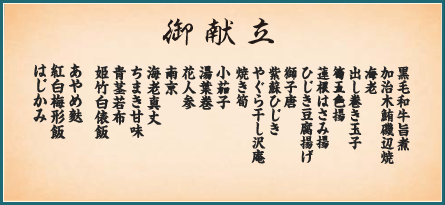 御献立
黒毛和牛旨煮
加治木鮪磯辺焼
海老
出し巻き玉子
筍五色揚
蓮根はさみ揚
ひじき豆腐揚げ
獅子唐
紫蘇ひじき
やぐら干し沢庵
焼き筍
小茄子
湯葉巻
花人参
南京
海老真丈
ちまき甘味
青茎若布
姫竹白俵飯
あやめ麩
紅白梅形飯
はじかみ